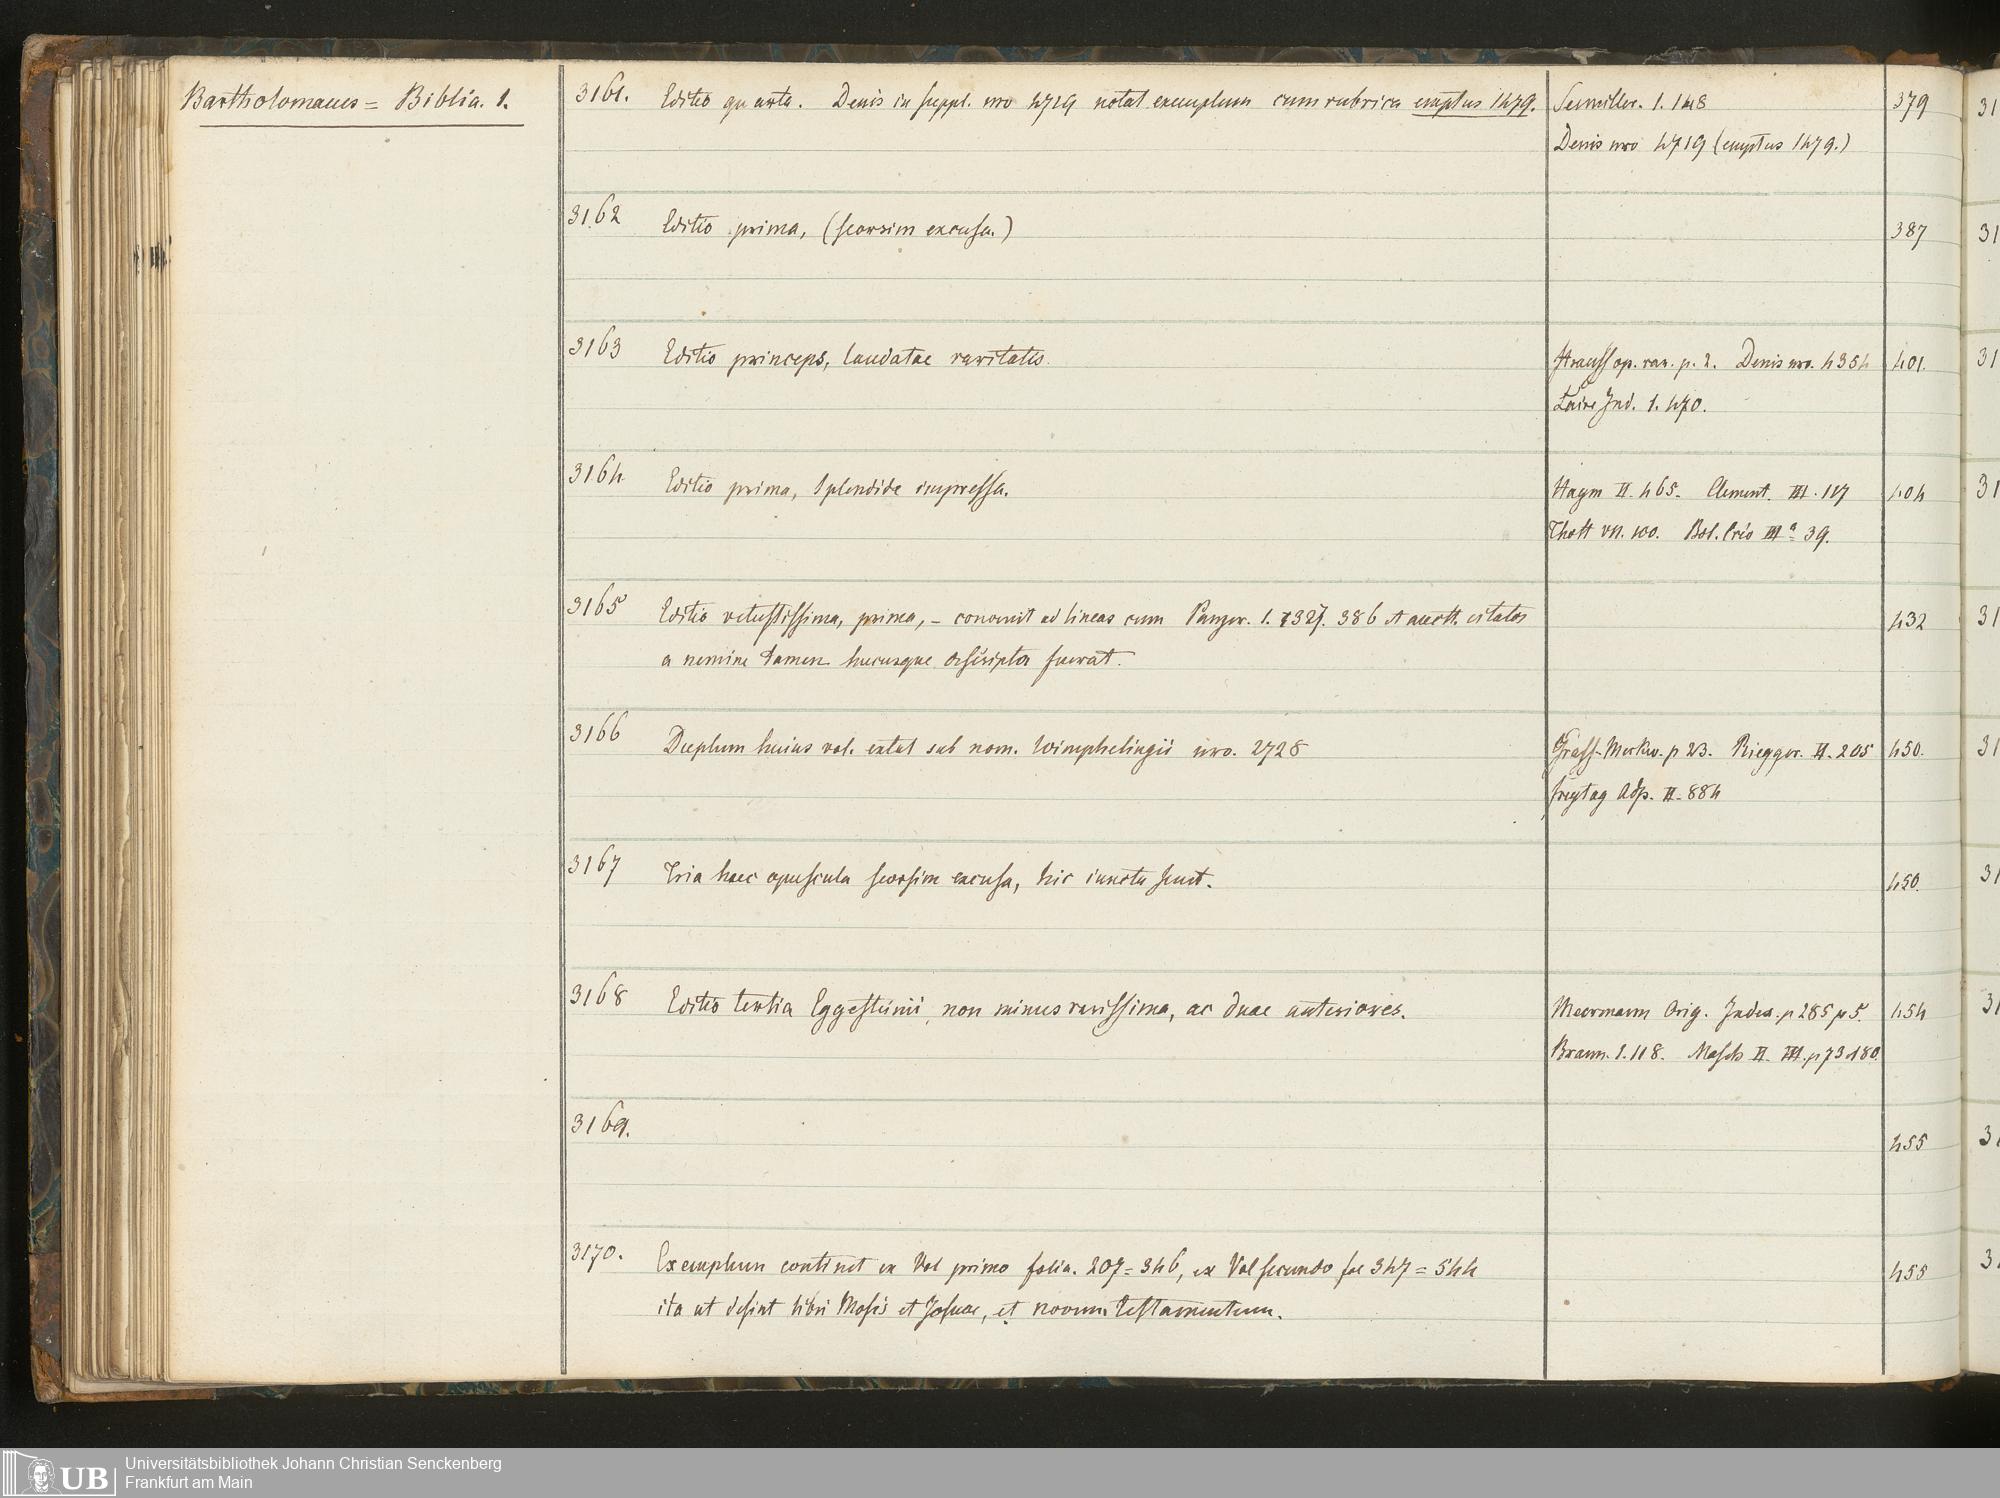 Bartholomaeus = Biblia. 1.
3161. Editio quarta. Denis in suppl. nro 4719 notat exemplum cum rubrica emptus 1479. Seemiller. 1. 148 379
Denis nro 4719 (emptus 1479.)
3162 Editio prima, (seorsim excusa.) 387
3163 Editio princeps, laudatae raritatis. Strauss op. rar. p. 2. Denis nro. 4354 401.
Laire Ind. 1. 470.
3164 Editio prima, splendide impressa. Haym II. 465. Clement. III. 117 404
Thott VII. 100. Bol. Cris III a 39.
3165 Editio vetustissima, prima, – convenit ad lineas cum Panzer. 1. 327. 386 et auctt. citatos 432
a nemine tamen hucusque descripta fuerat.
3166 Duplum huius vol. extat sub nom. Wimphelingii nro. 2728 Merkw. p 23. Riegger. II. 205 450.
freytag Adp. II. 884
3167 Tria haec opuscula seorsim excusa, hic iuncta sunt. 450.
3168 Editio tertia Eggesteinii, non minus rarissima, ac duae anteriores. Meermann Orig. Index. p 285 454
Braun. 1. 118. Masch II. III. p 73
3169. 455
3170. Exemplum continet ex Vol primo folia. 207 = 346, ex Vol secundo fol 347 = 544 455
ita ut desint libri Mosis et Josuae, et novum Testamentum.
31
31
31
31
31
31
31
31
3
3
UB
Universitätsbibliothek Johann Christian Senckenberg
Frankfurt am Main